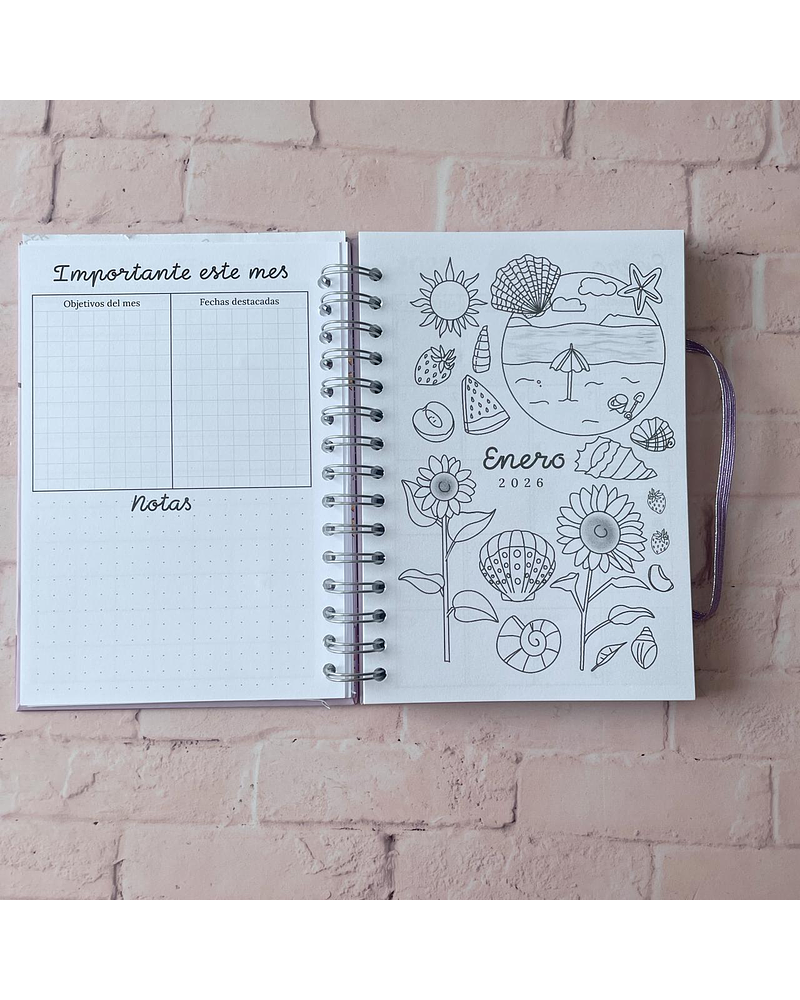 Importante este mes
Objetivos del mes Fechas destacadas
Notas
Enero
2026